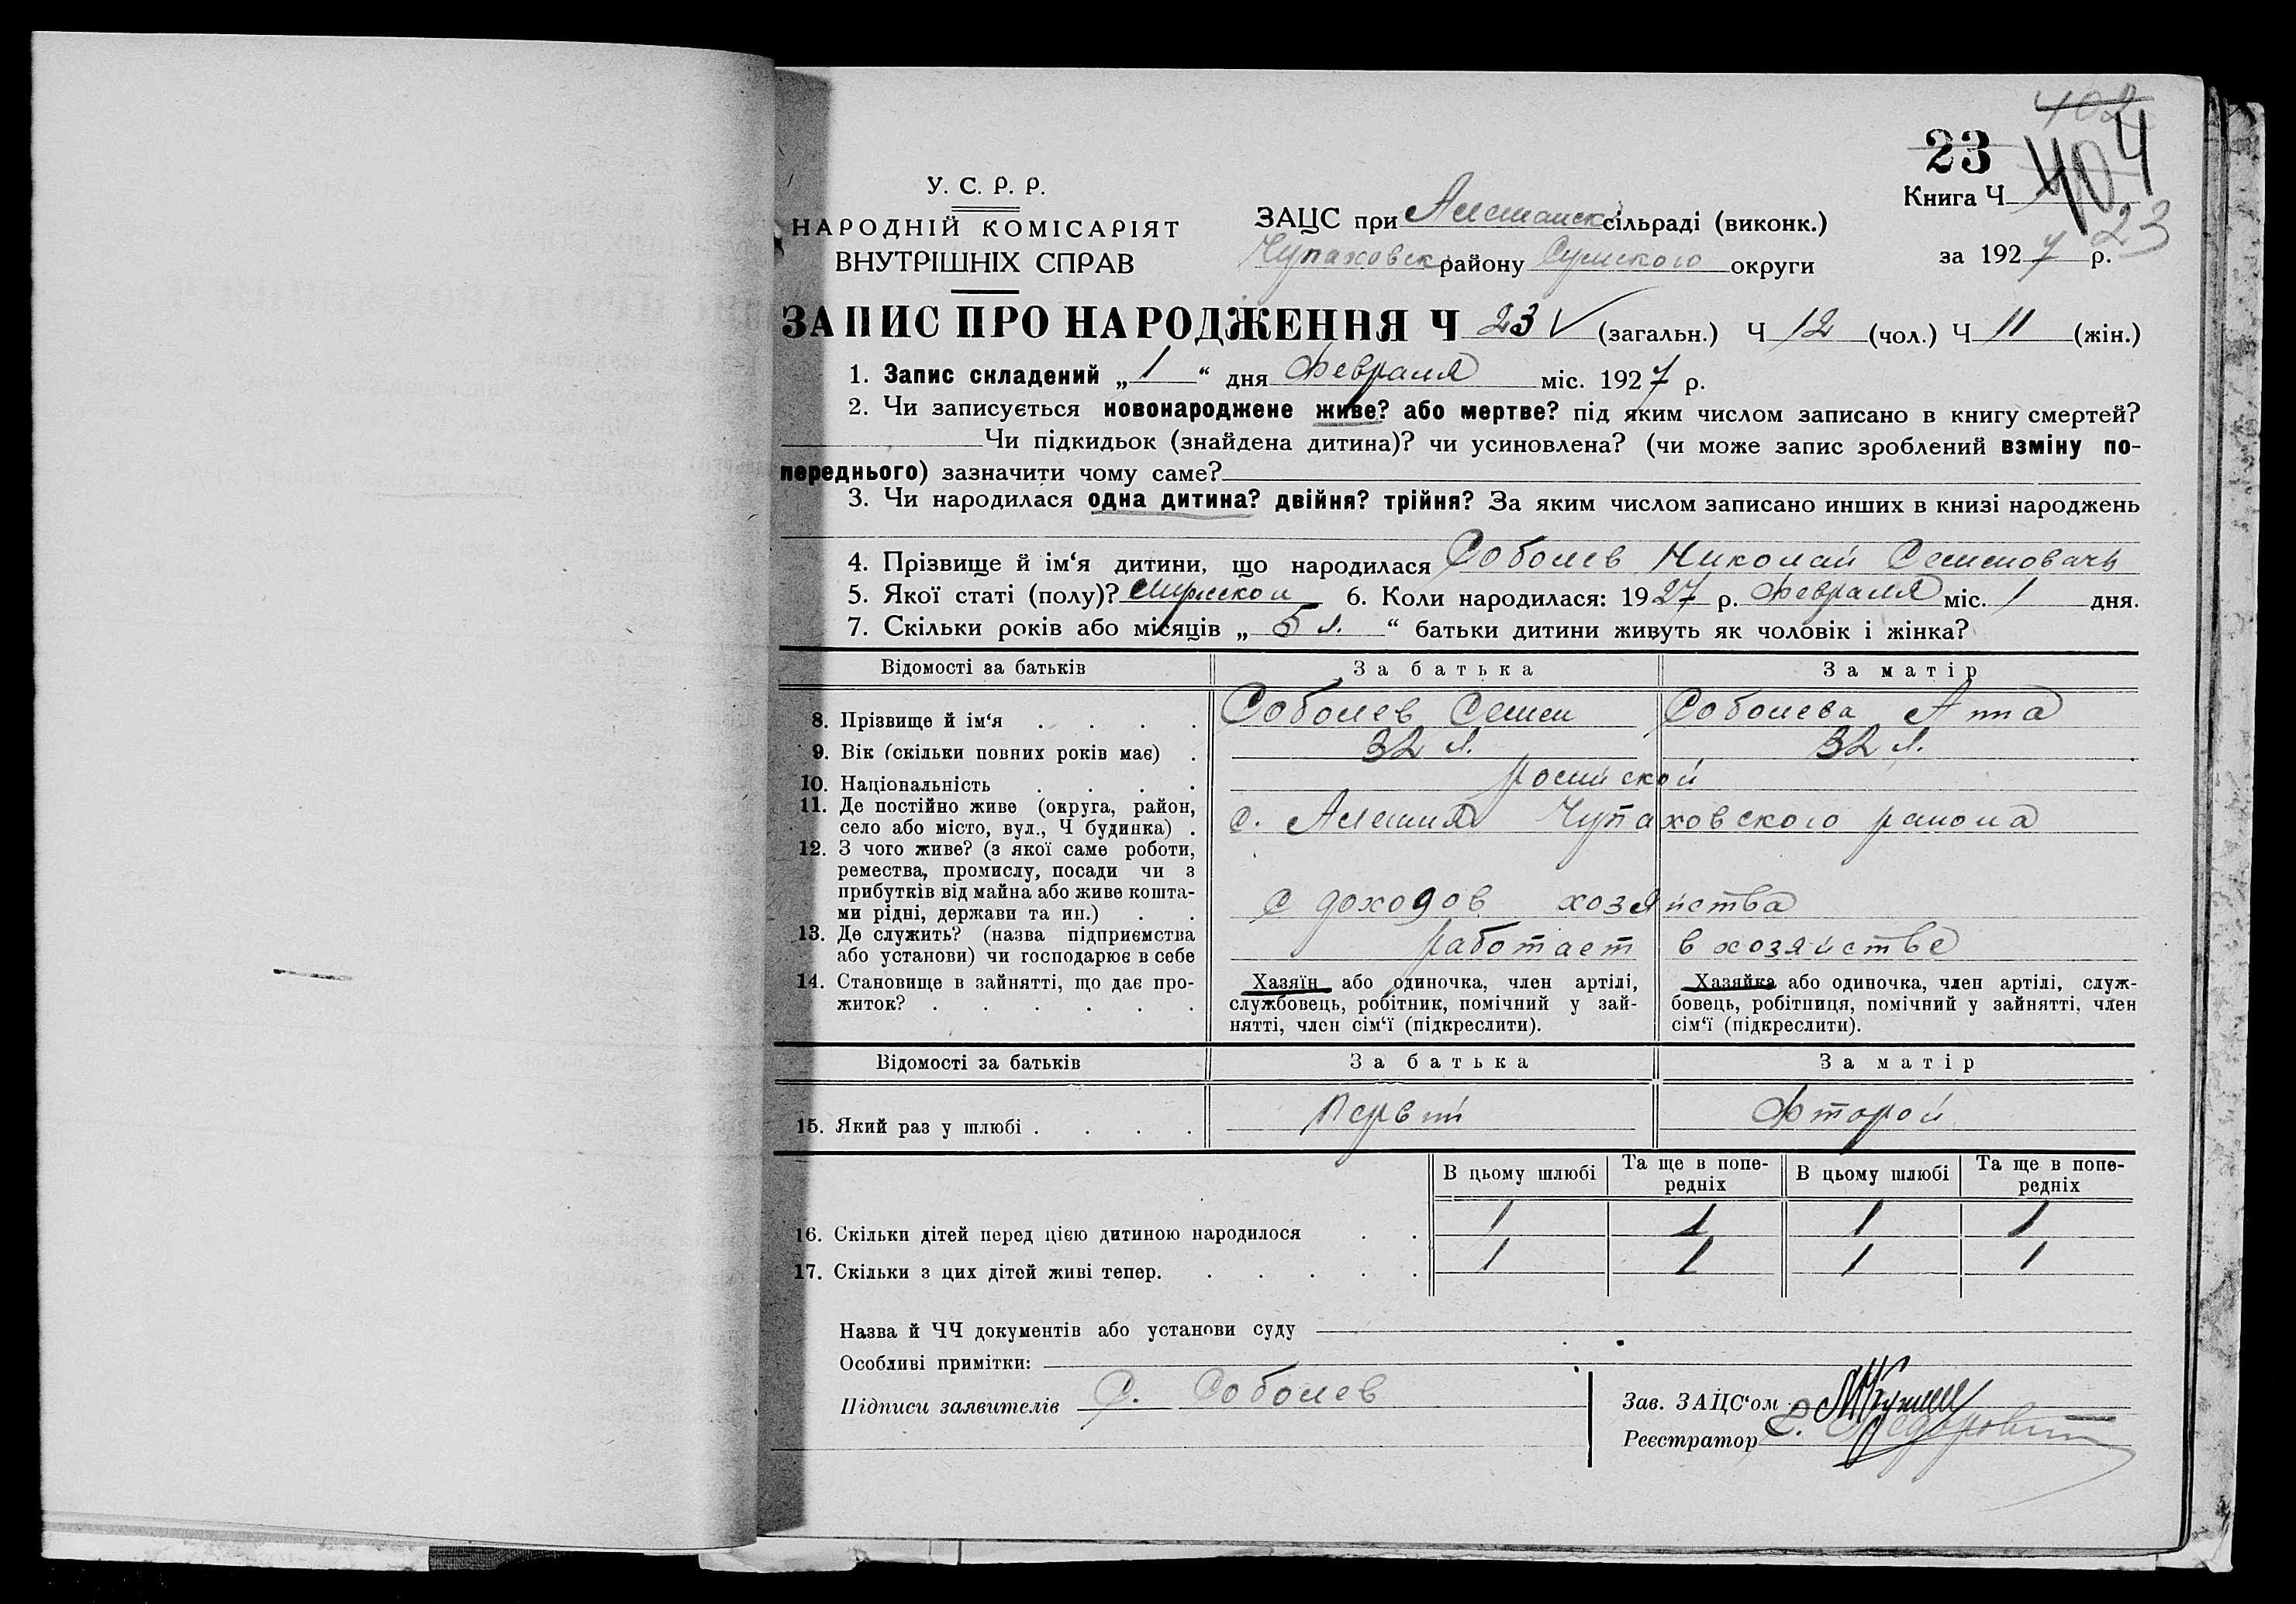 402
23 404
У. С. Р. Р.
Книга Ч
НАРОДНІЙ КОМІСАРІЯТ
ВНУТРІШНІХ СПРАВ
ЗАЦС при Алешанск сільраді (виконк.)
23
Чупаховск району Сумского округи
за 1927 р.
ЗАПИС ПРО НАРОДЖЕННЯ Ч 23 V (загальн.) Ч 12 (чол.) Ч 11 (жін.)
1. Запис складений „1“ дня Февраля міс. 1927 р.
2. Чи записується новонароджене живе? або мертве? під яким числом записано в книгу смертей?
Чи підкидьок (знайдена дитина)? чи усиновлена? (чи може запис зроблений взміну по-
переднього) зазначити чому саме?
3. Чи народилася одна дитина? двійня? трійня? За яким числом записано инших в книзі народжень
4. Прізвище й ім‘я дитини, що народилася Соболев Николай Семенович
5. Якої статі (полу)? мужской 6. Коли народилася: 1927 р. Февраля міс. 1 дня.
7. Скільки років або місяців „5 л.“ батьки дитини живуть як чоловік і жінка?
Відомості за батьків За батька За матір
8. Прізвище й ім‘я . . . . Соболев Семен Соболева Анна
9. Вік (скільки повних років має) . 32 л. 32 л.
10. Національність . . . . росийской
11. Де постійно живе (округа, район,
село або місто, вул., Ч будинка) . с. Алешня Чупаховского района
12. З чого живе? (з якої саме роботи,
ремества, промислу, посади чи з
прибутків від майна або живе кошта-
ми рідні, держави та ин.) . . с доходов хозяйства
13. Де служить? (назва підприємства
або установи) чи господарює в себе работает в хозяйстве
14. Становище в зайнятті, що дає про-
житок? . . . . . .
Хазяїн або одиночка, член артілі,
службовець, робітник, помічний у зай-
нятті, член сім‘ї (підкреслити).
Хазяйка або одиночка, член артілі, служ-
бовець, робітниця, помічний у зайнятті, член
сім‘ї (підкреслити).
Відомості за батьків За батька За матір
15. Який раз у шлюбі . . . . Первый Фторой
В цьому шлюбі Та ще в попе-
редніх В цьому шлюбі Та ще в попе-
редніх
16. Скільки дітей перед цією дитиною народилося . . 1 1 1 1
17. Скільки з цих дітей живі тепер. . . . . . 1 1 1 1
Назва й ЧЧ документів або установи суду
Особливі примітки:
Підписи заявителів С. Соболев
Зав. ЗАЦС‘ом
Реєстратор